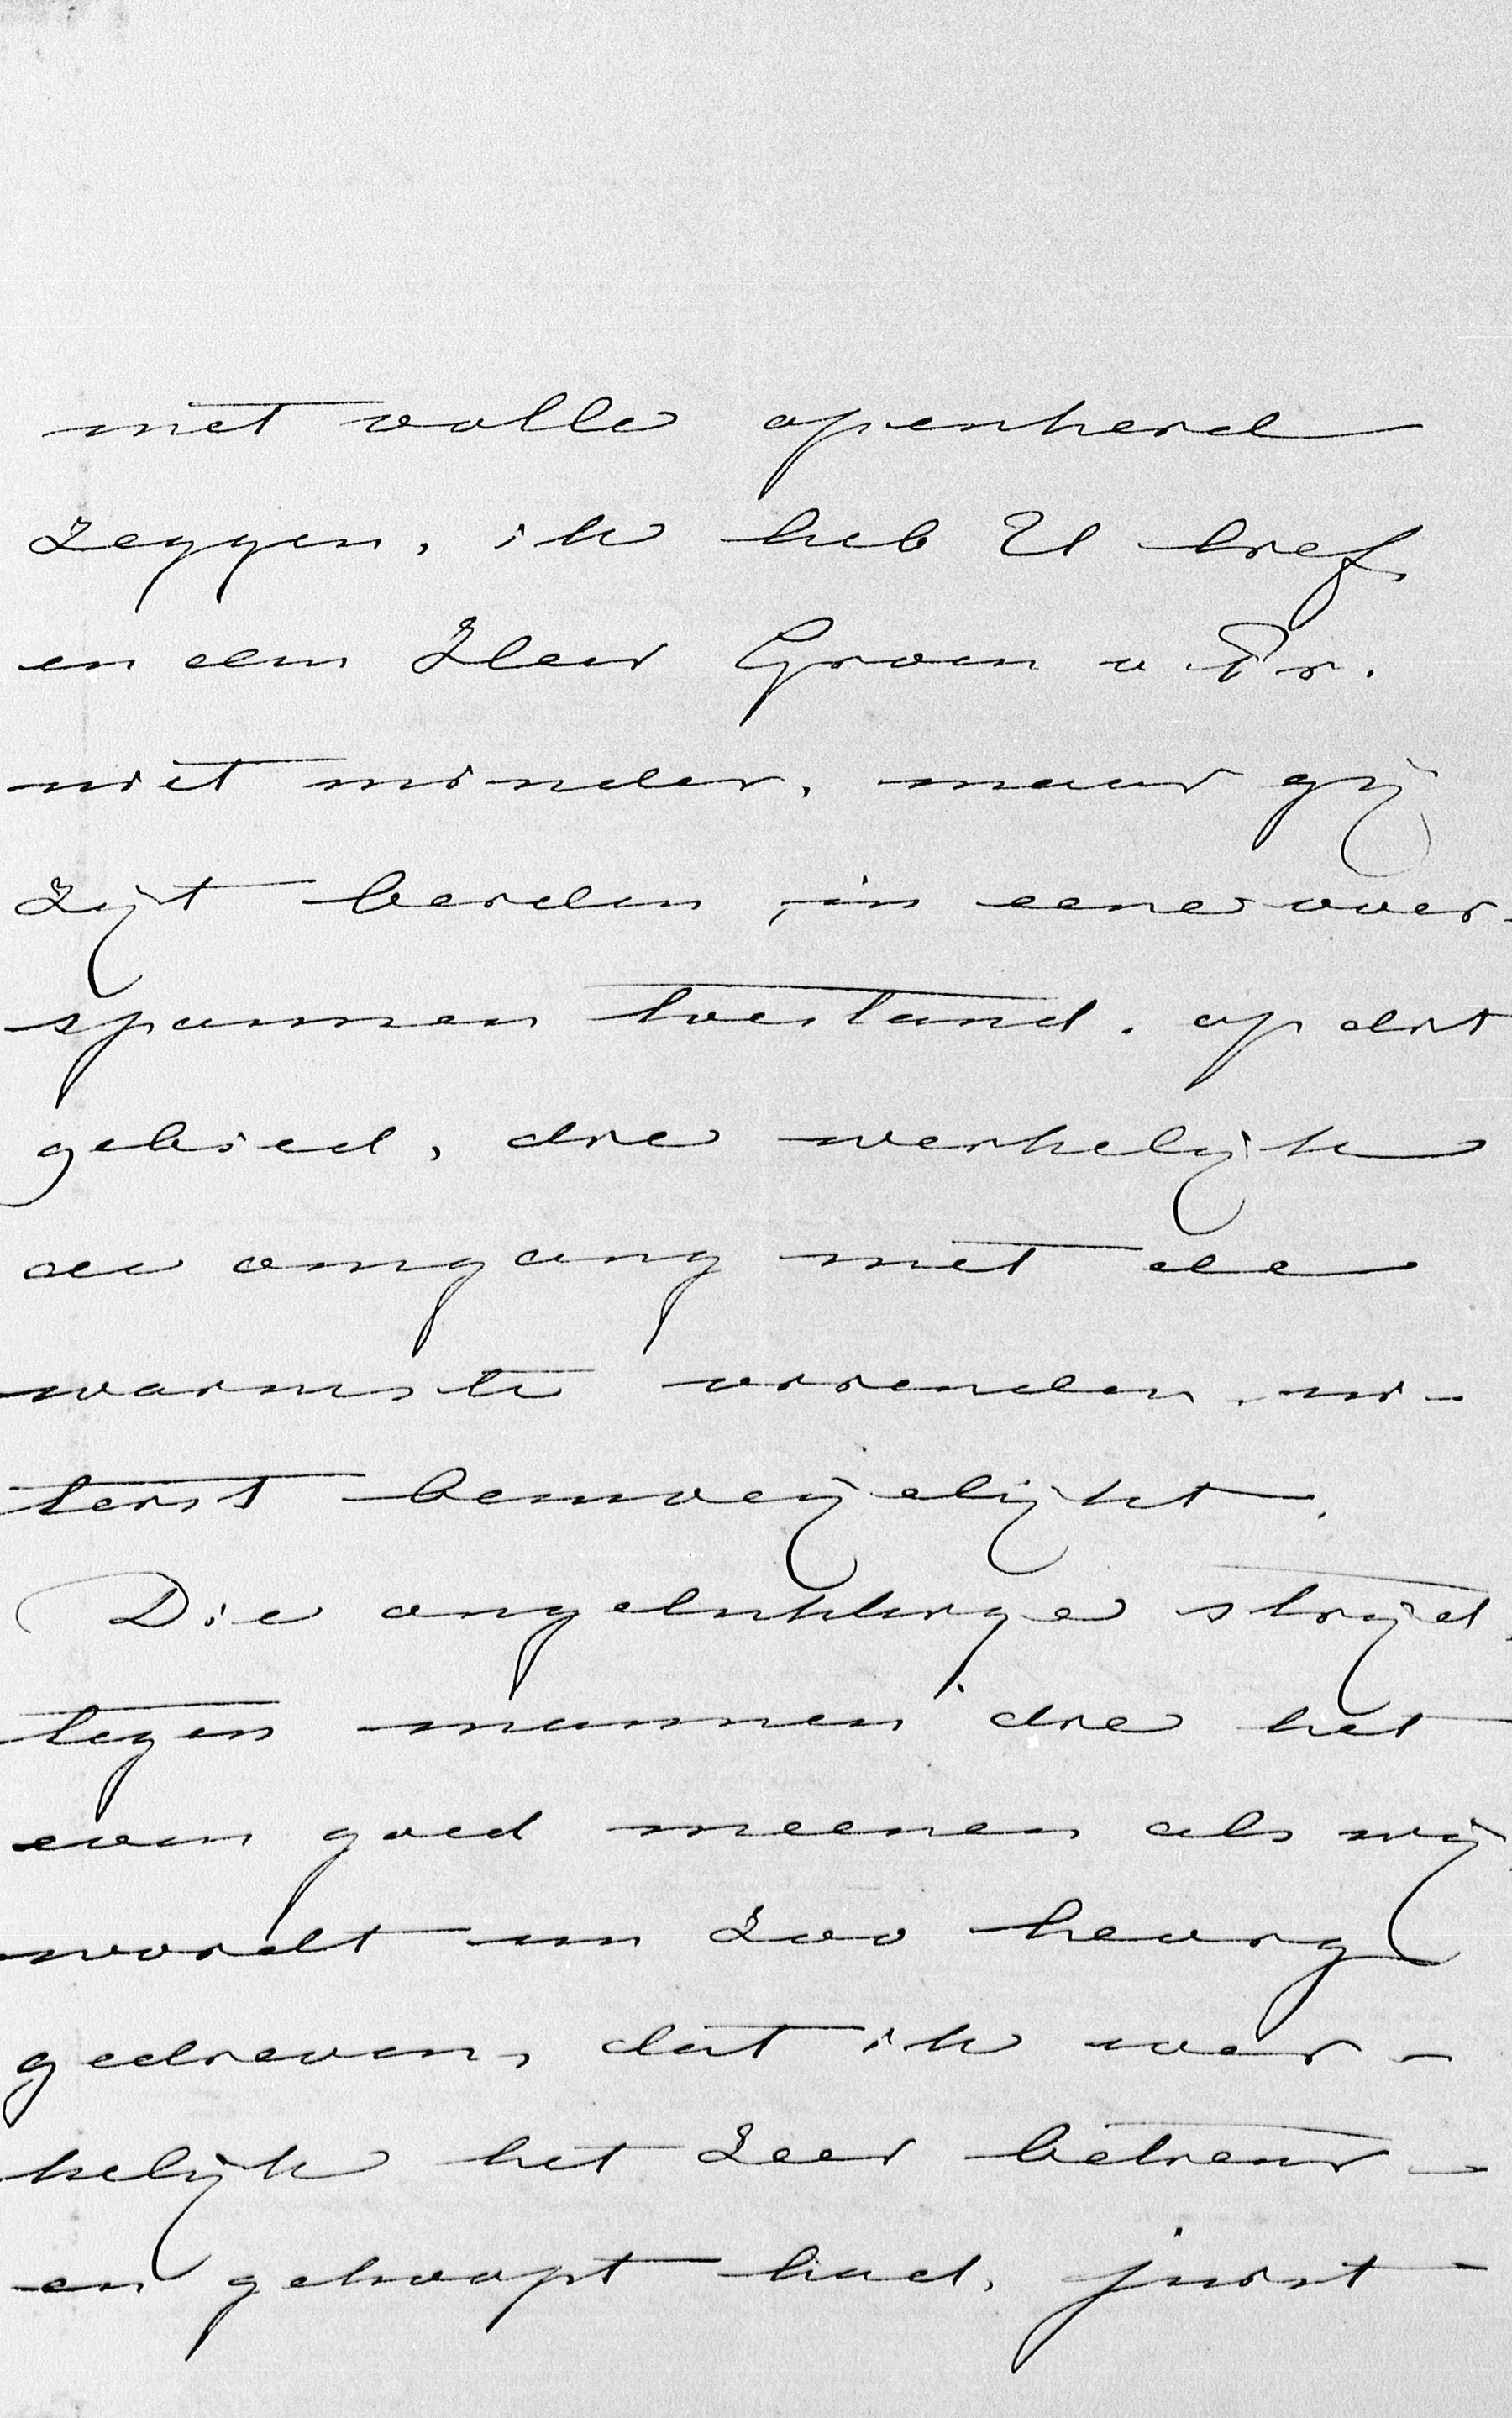 met volle openheid
zeggen, ik heb U lief,
en den Heer Groen v. Pr.
niet minder, maar gij
zijt beiden, in eene over-
spannen toestand. op dit
gebied, die werkelijk
de omgang met de
warmste vrienden, ui-
terst bemoeijelijkt.
Die ongelukkige strijd,
tegen mannen die het
even goed meenen als wij
wordt nu zoo hevig
gedreven, dat ik wer-
kelijk het zeer betreur -
en gehoopt had, juist